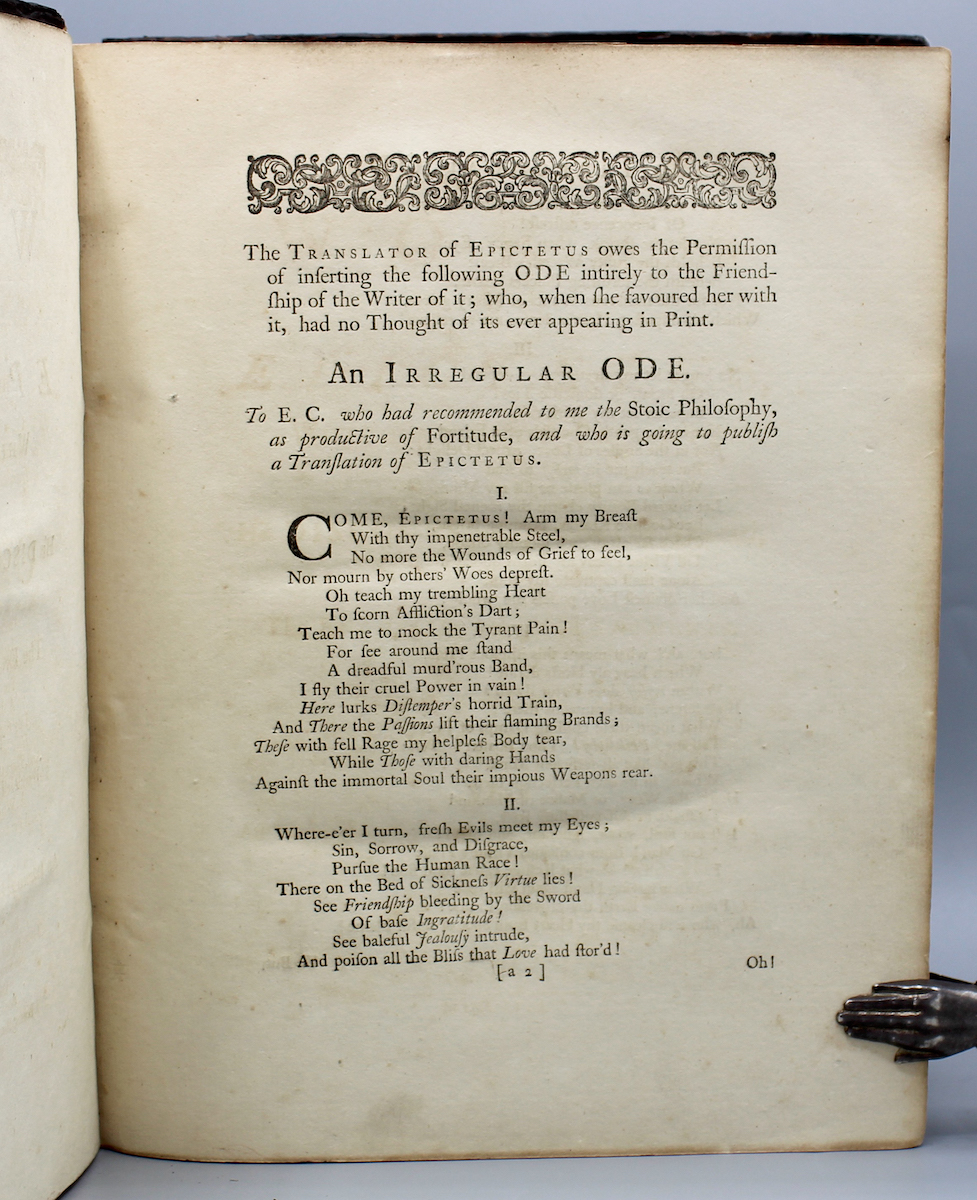 The TRANSLATOR of EPICTETUS owes the Permiſſion
of inſerting the following ODE intirely to the Friend-
ſhip of the Writer of it; who, when ſhe favoured her with
it, had no Thought of its ever appearing in Print.
An IRREGULAR ODE.
To E. C. who had recommended to me the Stoic Philoſophy,
as productive of Fortitude, and who is going to publiſh
a Tranſlation of EPICTETUS.
I.
COME, EPICTETUS! Arm my Breaſt
With thy impenetrable Steel,
No more the Wounds of Grief to feel,
Nor mourn by others' Woes depreſt.
Oh teach my trembling Heart
To ſcorn Affliction's Dart;
Teach me to mock the Tyrant Pain!
For ſee around me ſtand
A dreadful murd'rous Band,
I fly their cruel Power in vain!
Here lurks Diſtemper's horrid Train,
And There the Paſſions lift their flaming Brands;
Theſe with fell Rage my helpleſs Body tear,
While Thoſe with daring Hands
Againſt the immortal Soul their impious Weapons rear.
II.
Where-e'er I turn, freſh Evils meet my Eyes;
Sin, Sorrow, and Diſgrace,
Purſue the Human Race!
There on the Bed of Sickneſs Virtue lies!
See Friendſhip bleeding by the Sword
Of baſe Ingratitude!
See baleful Jealouſy intrude,
And poiſon all the Bliſs that Love had ſtor'd!
[a 2]
Oh!